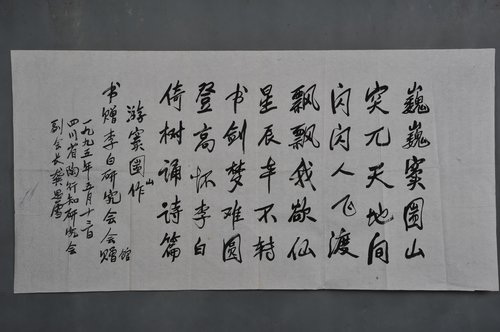 巍巍窦圌山
突兀天地间
闪闪人飞渡
飘飘我欲仙
星辰半不转
书剑梦难圆
登高怀李白
倚树诵诗篇
游窦圌山作
书赠李白研究会会馆
一九九五年五月十二日
四川省陶行知研究会
副会长